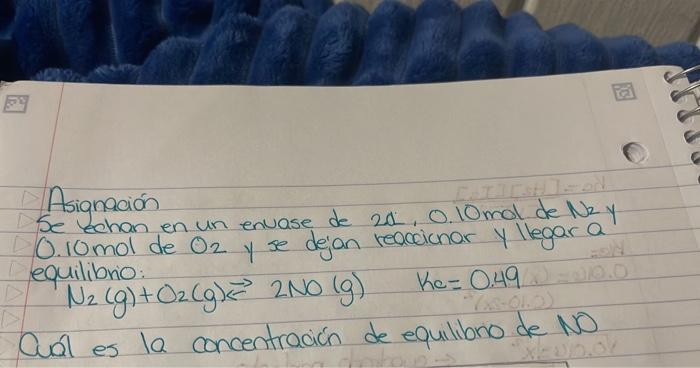 Asignación
Se echan en un envase de 2L, 0.10mol de N2 y
0.10mol de O2 y se dejan reaccionar y llegar a
equilibrio:
N2(g)+O2(g)⇌ 2NO(g) Kc= 0.49
Cuál es la concentración de equilibrio de NO